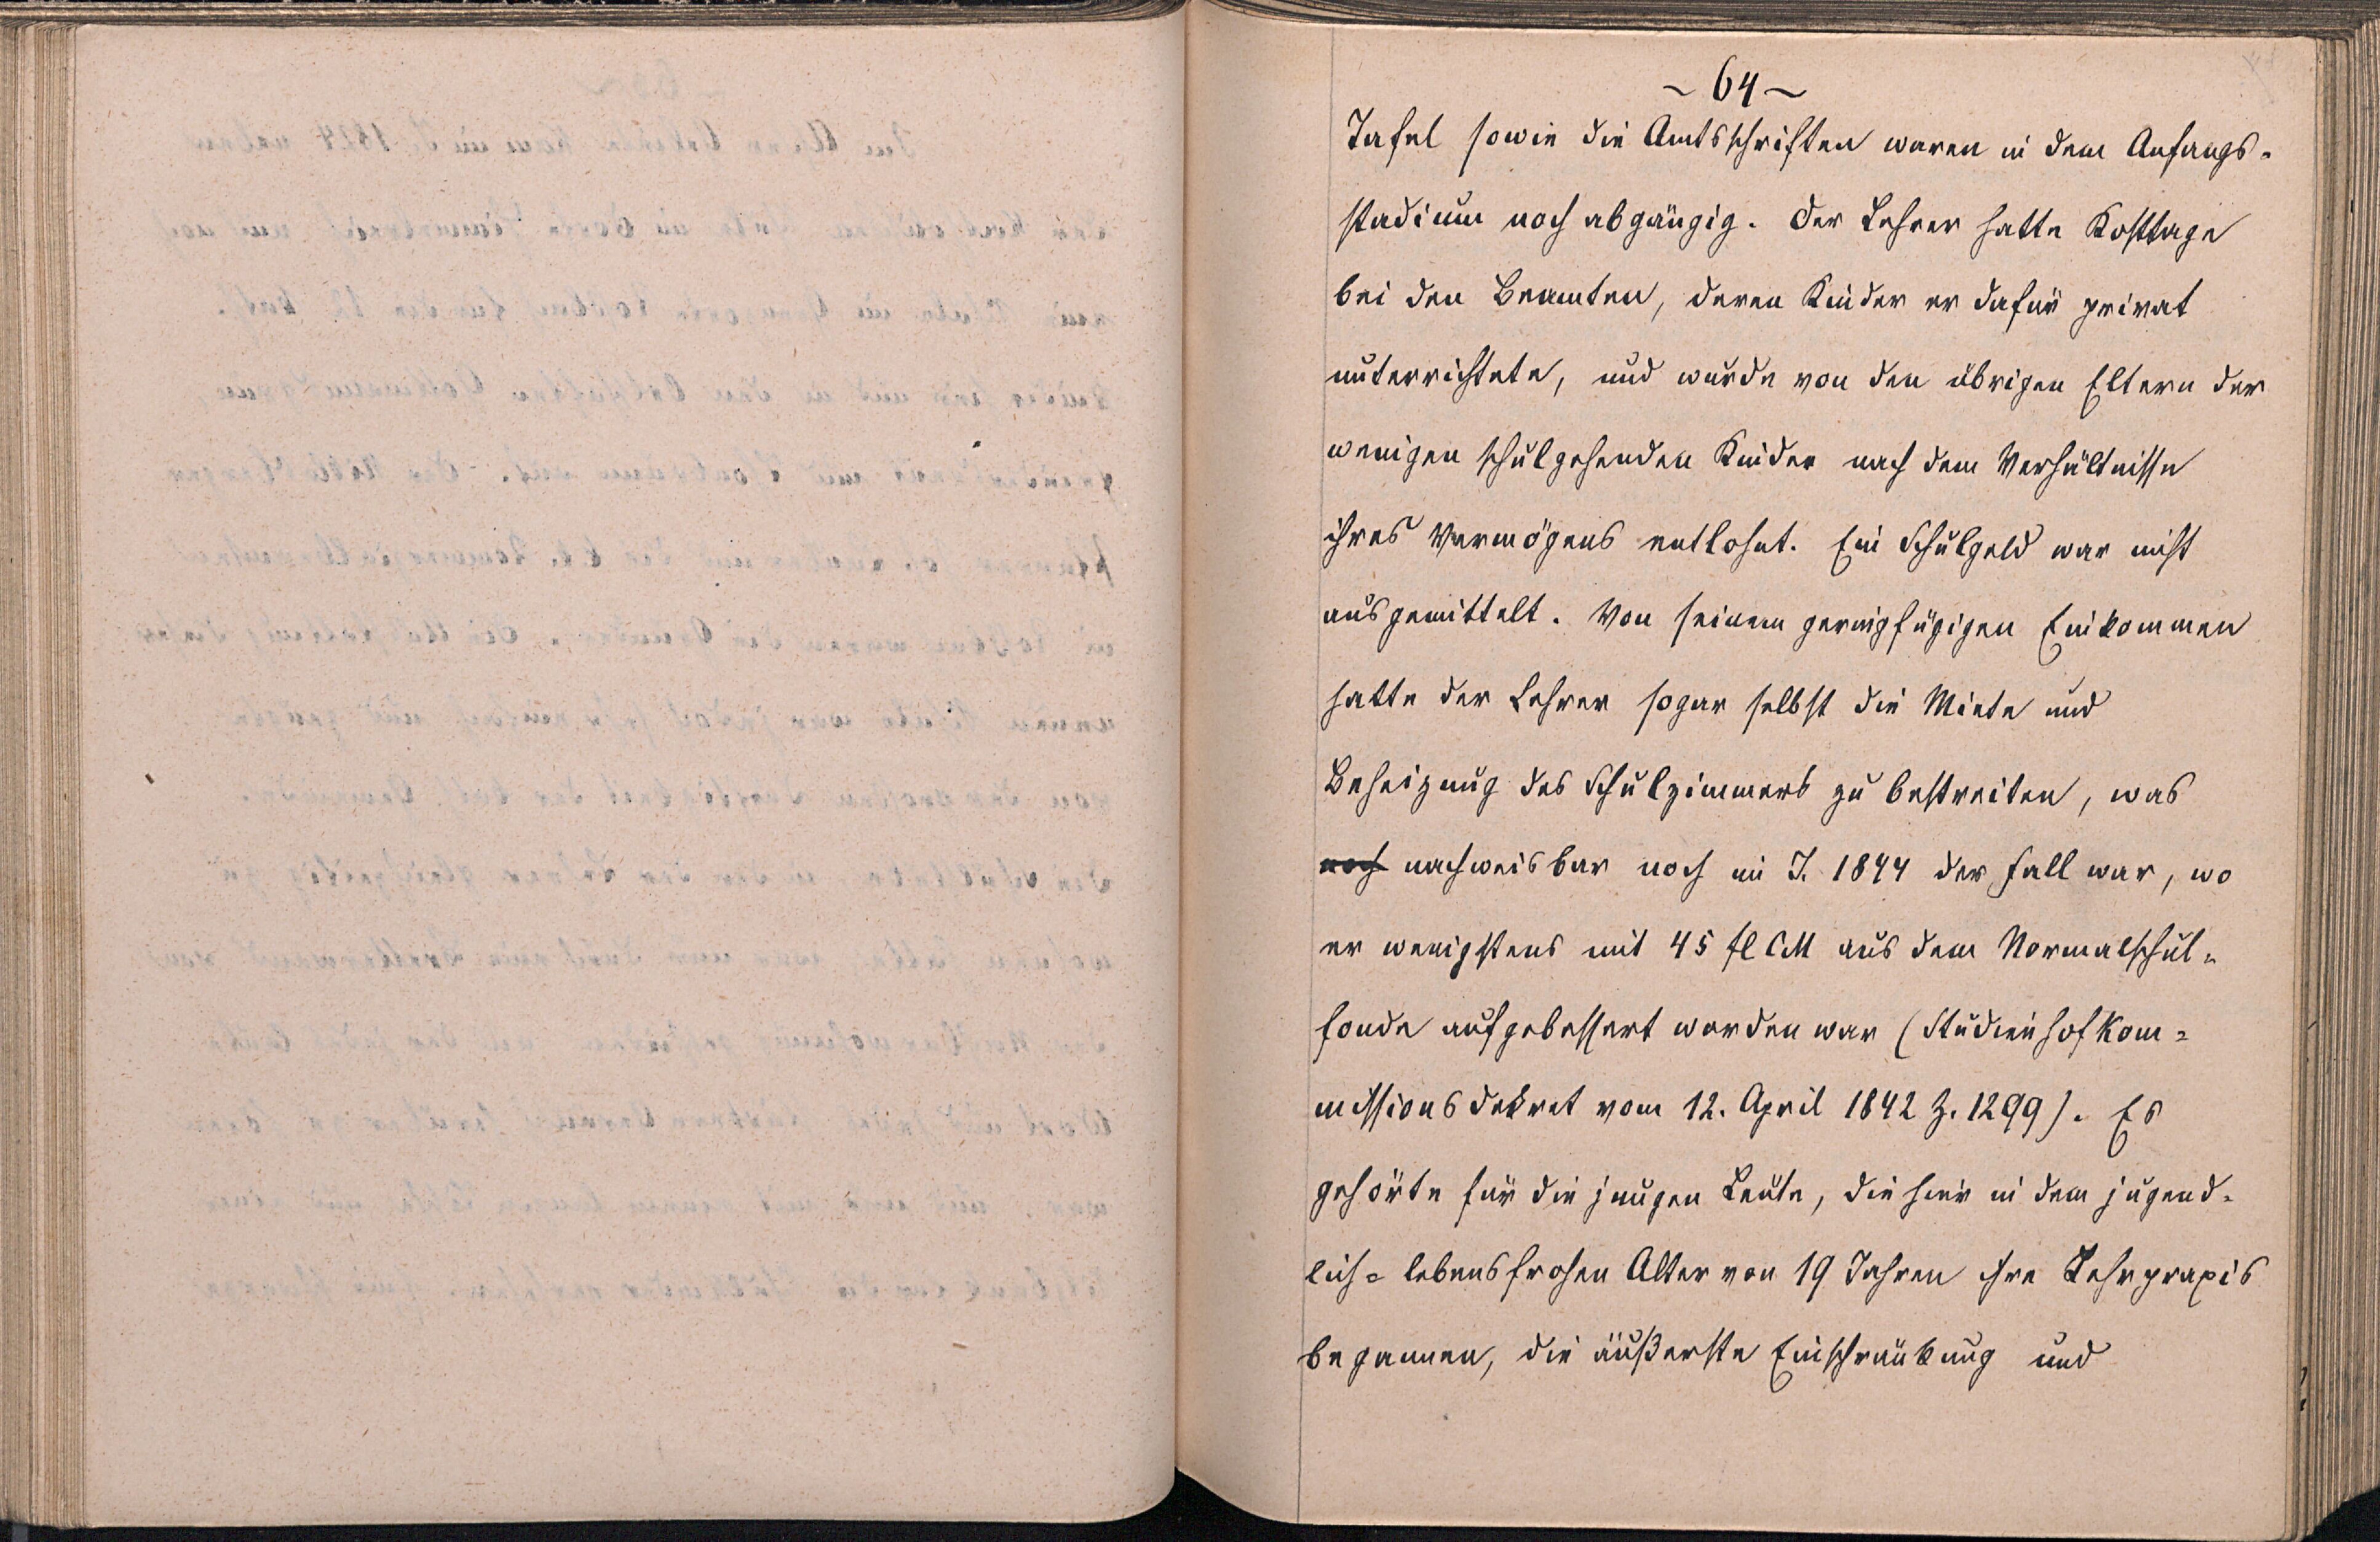 ~ 64 ~
Tafel sowie die Amtsschriften waren in dem Anfangs-
stadium noch abgängig. Der Lehrer hatte Kosttage
bei den Beamten, deren Kinder er dafür privat
unterrichtete, und wurde von den übrigen Eltern der
wenigen schulgehenden Kinder nach dem Verhältnisse
ihres Vermögens entlohnt. Ein Schulgeld war nicht
ausgemittelt. Von seinem geringfügigen Einkommen
hatte der Lehrer sogar selbst die Miete und
Beheizung des Schulzimmers zu bestreiten, was
noch nachweisbar noch im J. 1844 der Fall war, wo
er wenigstens mit 45 fl CM aus dem Normalschul-
fonde aufgebessert worden war (Studienhofkom-
missionsdekret vom 12. April 1842 Z. 1299). Es
gehörte für die jungen Leute, die hier in dem jugend-
lich-lebensfrohen Alter von 19 Jahren ihre Lehrpraxis
begannen, die äußerste Einschränkung und